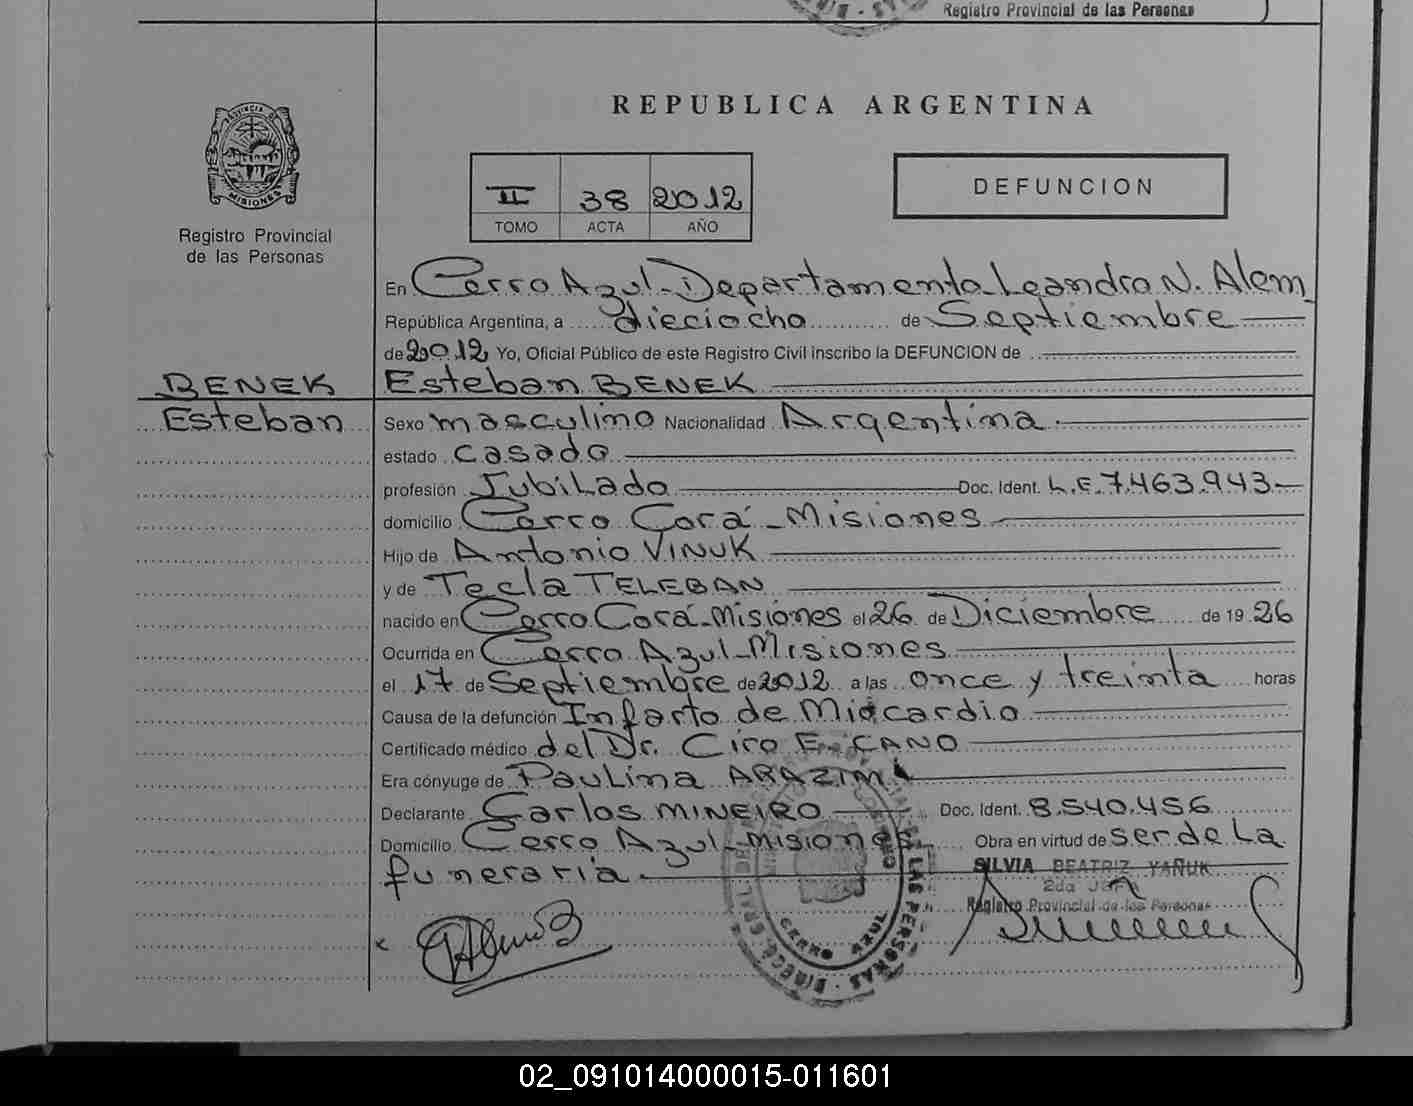 Registro Provincial de las Personas
PROVINCIA D
MISIONES
Registro Provincial
de las Personas
REPUBLICA ARGENTINA
II 38 2012
TOMO ACTA AÑO
DEFUNCION
En Cerro Azul - Departamento Leandro N. Alem
República Argentina, a dieciocho de Septiembre
de 2012 Yo, Oficial Público de este Registro Civil inscribo la DEFUNCION de
BENEK Esteban BENEK
Esteban Sexo masculino Nacionalidad Argentina.
estado casado
profesión Jubilado Doc. Ident. L.E. 7.463.943-
domicilio Cerro Corá - Misiones
Hijo de Antonio VINUK
y de Tecla TELEBAN
nacido en Cerro Corá - Misiones el 26 de Diciembre de 1926
Ocurrida en Cerro Azul - Misiones
el 17 de Septiembre de 2012 a las once y treinta horas
Causa de la defunción Infarto de Miocardio
Certificado médico del Dr. Ciro F. CANO
Era cónyuge de Paulina
Declarante Carlos MINEIRO Doc. Ident. 8.540.456
Domicilio Cerro Azul - Misiones Obra en virtud de ser de La
funeraria.
SILVIA BEATRIZ YAÑUK
2da Jefa
Registro Provincial de las Personas
CERRO AZUL
LAS PERSONAS
02_091014000015-011601